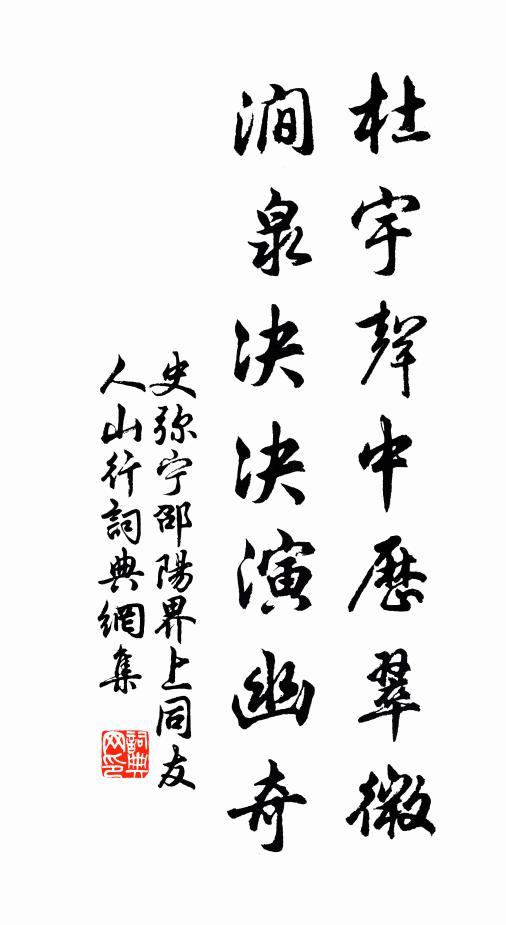 杜宇聲中歷翠微
澗泉决决演幽奇
史弥宁邵陽界上同友
人山行詞典網集
詞典
网印